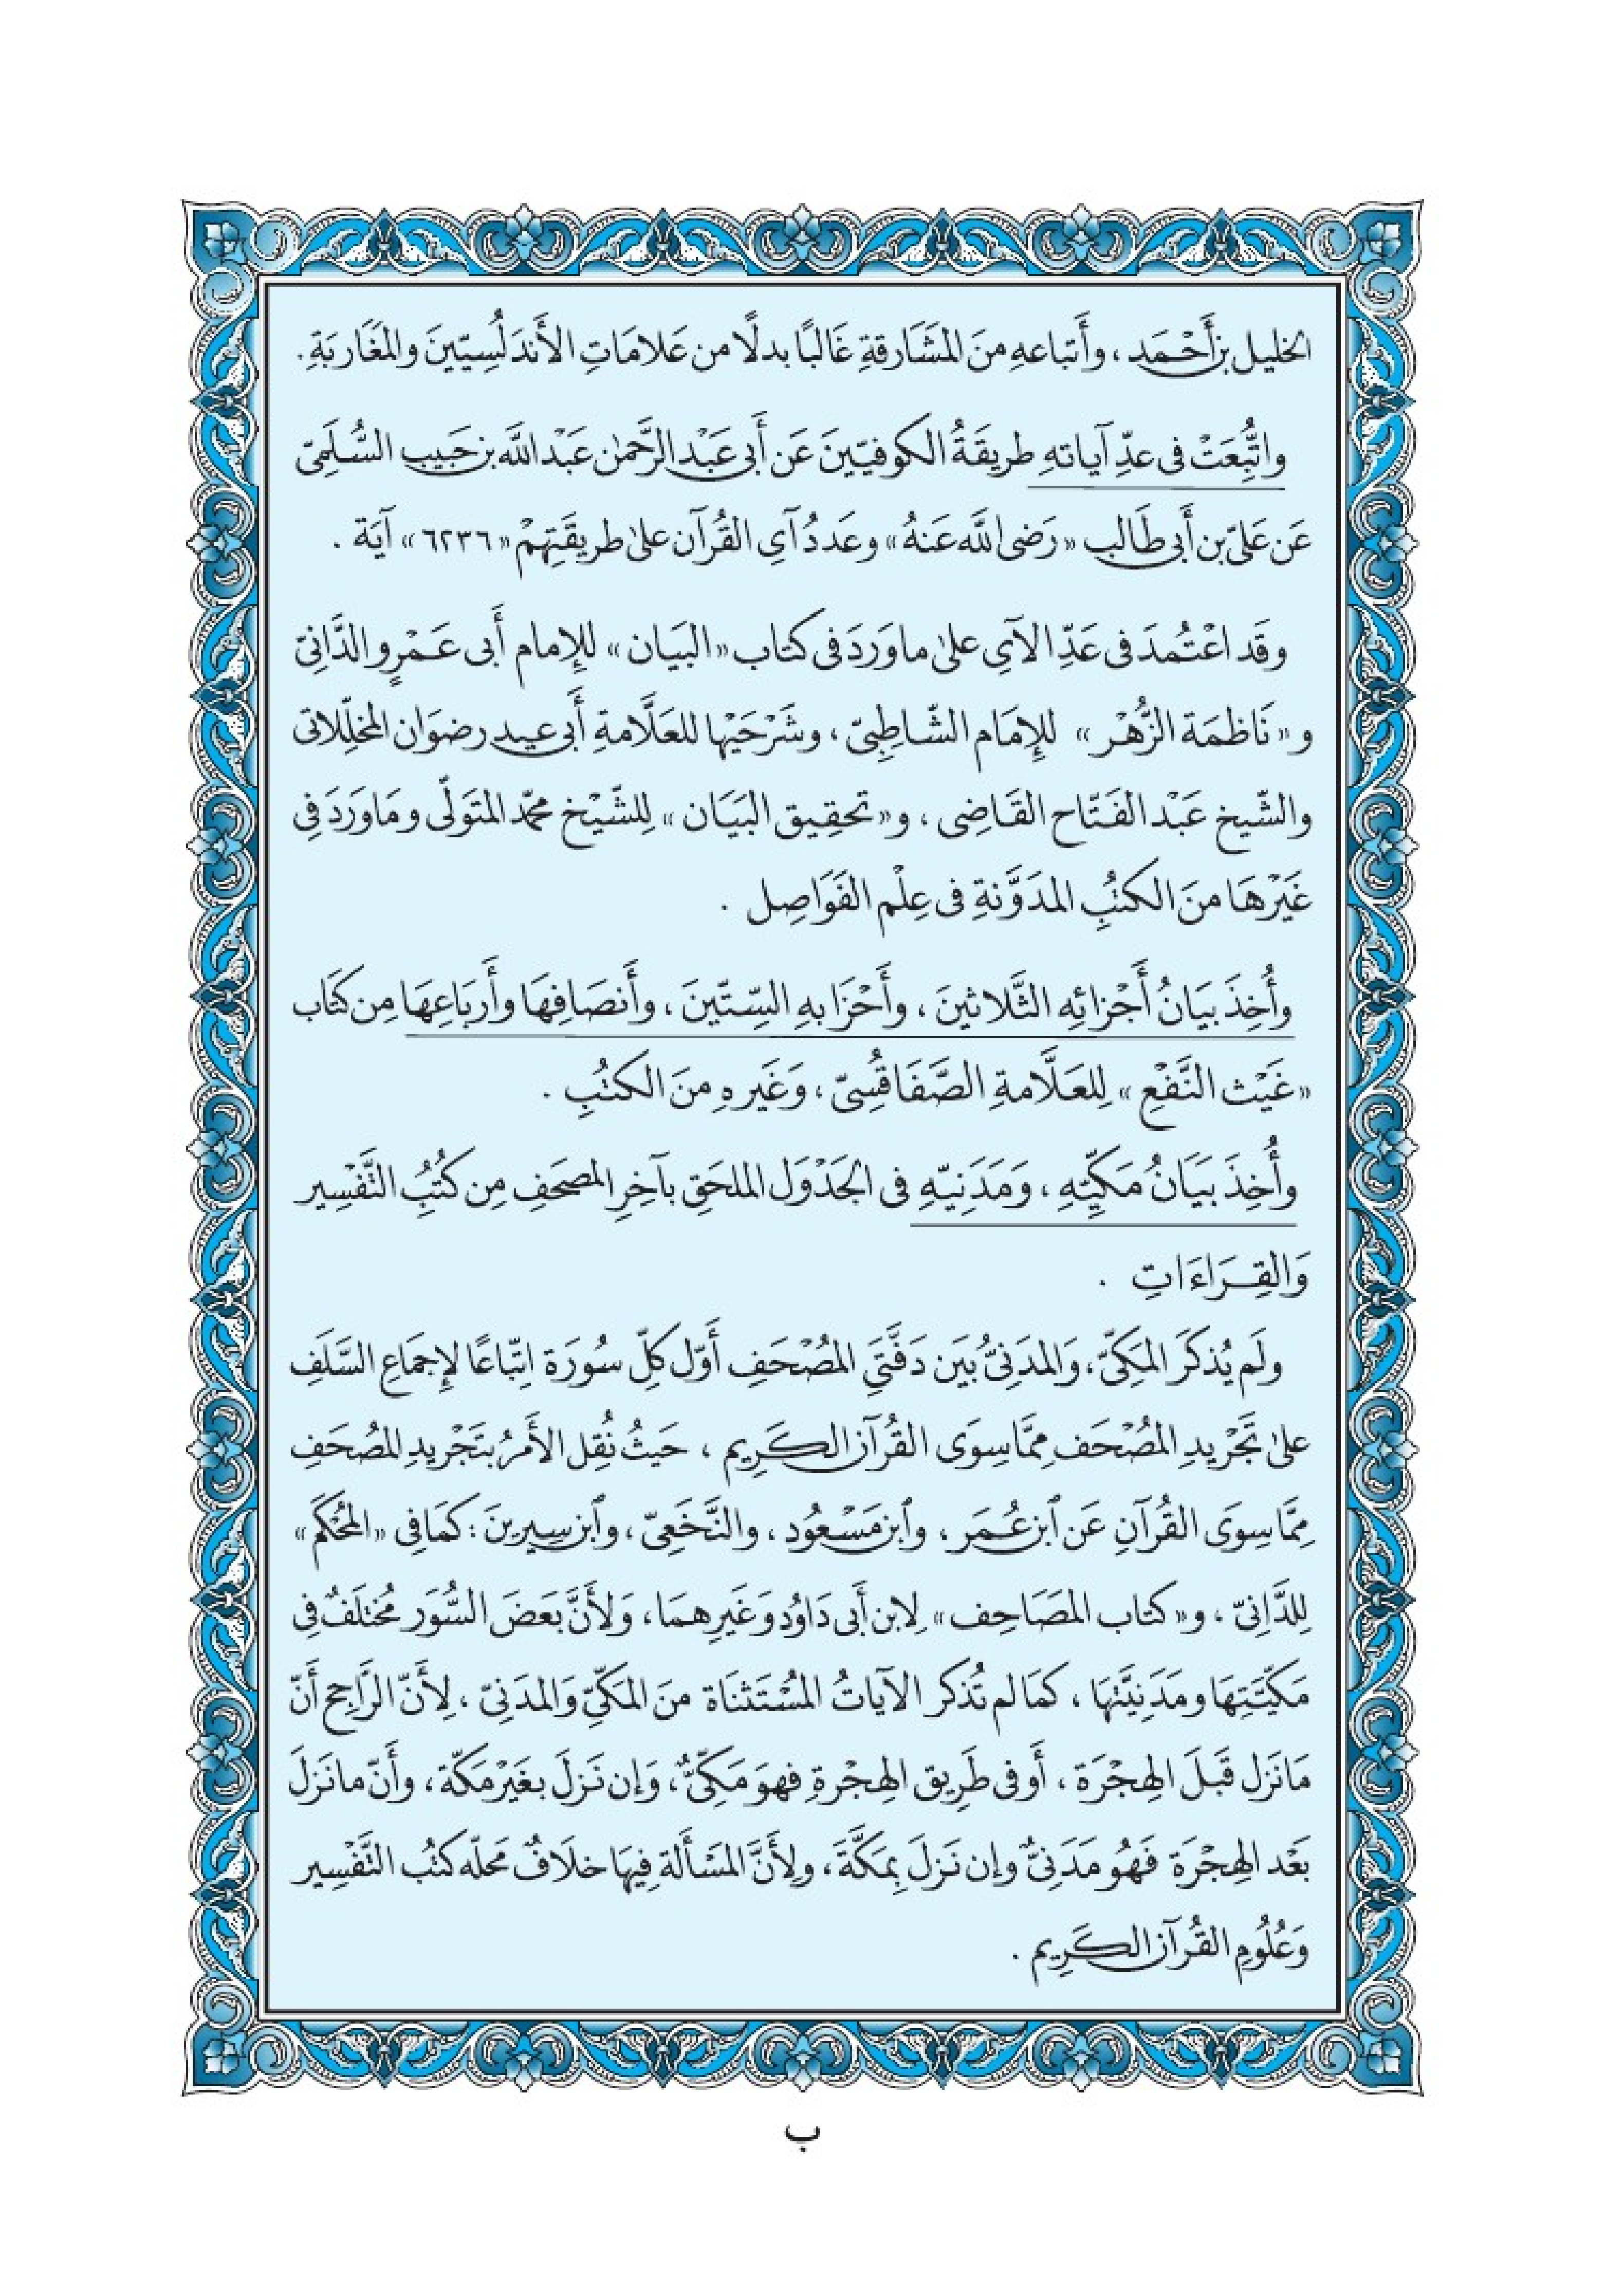 الخليل بن أَحْمَد ، وأَتباعه منَ المَشَارقةِ غَالبًا بدلًا من عَلامَاتِ الأَندَلُسِيّينَ والمغَاربَةِ .
واتُّبِعَتْ فى عدِّ آياتهِ طريقَةُ الكوفيّينَ عَن أَبى عَبْد الرَّحمٰن عَبْد اللَّه بن حَبيب السُّلَمِىّ
عَن عَلىّ بن أَبى طَالب « رَضى اللَّه عَنهُ » وعَددُ آىِ القُرآن علىٰ طريقَتِهمْ « ٦٢٣٦ » آيَة .
وقَد اعْتُمدَ فى عَدِّ الآىِ علىٰ ما وَردَ فى كتاب « البَيان » للإِمام أَبى عَمْرٍو الدَّانِىّ
و « نَاظمَة الزُّهْر » للإِمَام الشّاطِبىّ ، وشَرْحَيْها للعَلَّامةِ أَبى عيد رضوَان المخلِّلاتى
والشّيخ عَبْد الفَتّاح القَاضِى ، و « تحقِيق البَيَان » لِلشَّيْخ محمّد المتَولّى ومَا وَردَ فِى
غَيْرهَا منَ الكتُبِ المدَوَّنةِ فى عِلْم الفَوَاصِل .
وأُخِذَ بَيَانُ أَجْزائِه الثَّلاثينَ ، وأَحْزَابهِ السِّتّينَ ، وأَنصَافِهَا وأَربَاعِهَا مِن كتَاب
« غَيْث النَّفْعِ » لِلعَلَّامةِ الصَّفَاقُسِىّ ، وَغَيرهِ منَ الكتُبِ .
وأُخِذَ بَيَانُ مَكِّيِّهِ ، وَمَدَنيّهِ فى الجَدْوَل الملحَق بآخِرِ المصحَفِ مِن كتُبِ التَّفْسِير
وَالقِرَاءَاتِ .
ولَم يُذكَر المَكِىّ ، وَالمدَنىُّ بَين دَفَّتَىِ المُصْحَفِ أَوّل كلّ سُورَة اتِّباعًا لإِجمَاعِ السَّلَفِ
علىٰ تَجْرِيدِ المُصْحَف مِمَّا سِوَى القُرآن الكَرِيم ، حَيثُ نُقِل الأَمرُ بتَجْرِيدِ المُصْحَفِ
مِمَّا سِوَى القُرآنِ عَن ٱبن عُمَر ، وٱبن مَسْعُود ، والنَّخَعِىّ ، وٱبن سِيرينَ : كمَا فِى « المُحْكَم »
لِلدَّانِىّ ، و « كتاب المصَاحِف » لِابن أَبى دَاوُد وَغَيرِهمَا ، وَلأَنَّ بَعَضَ السُّوَر مُختلَفٌ فِى
مَكّيّتِهَا ومَدَنِيَّتهَا ، كمَا لم تُذكر الآياتُ المُسْتَثنَاة منَ المَكِّىّ وَالمدَنِىّ ، لِأَنّ الرَّاجِحَ أَنّ
مَا نَزل قَبلَ الهِجْرَة ، أَو فى طَرِيق الهِجْرةِ فهوَ مَكِّىٌّ ، وَإن نَزلَ بغَيْر مَكّة ، وأَنّ ما نَزلَ
بَعْد الهِجْرَة فَهُو مَدَنىٌّ وإن نَزلَ بِمَكَّةَ ، ولِأَنَّ المَسْأَلة فِيهَا خلَافٌ مَحلّه كتُب التَّفْسِير
وَعُلُومِ القُرآن الكَرِيم .
ب